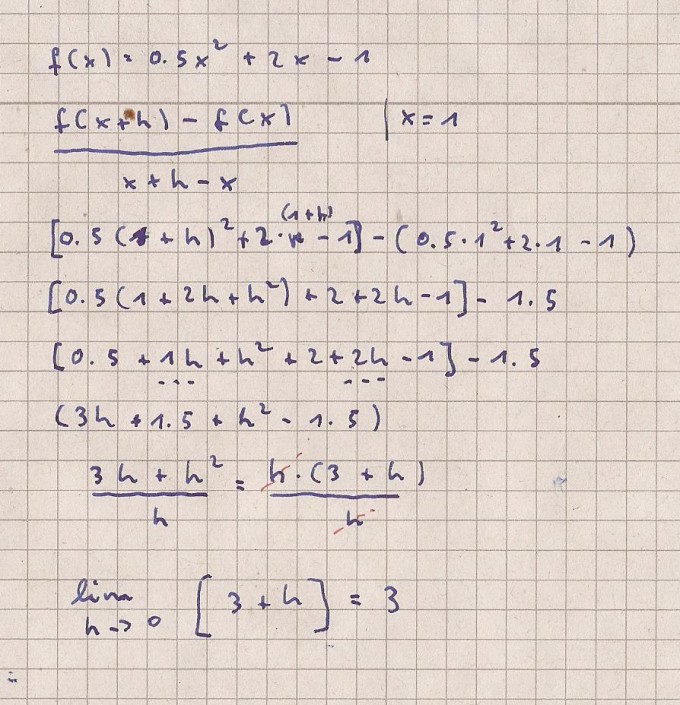 f(x) = 0.5x² + 2x - 1
f(x+h) - f(x) | x = 1
x + h - x
(1+h)
[0.5 (1 + h)² + 2· - 1] - (0.5·1² + 2·1 - 1)
[0.5(1 + 2h + h²) + 2 + 2h - 1] - 1.5
[0.5 + 1h + h² + 2 + 2h - 1] - 1.5
(3h + 1.5 + h² - 1.5)
3h + h² = h·(3 + h)
h h
lim [3 + h] = 3
h -> 0